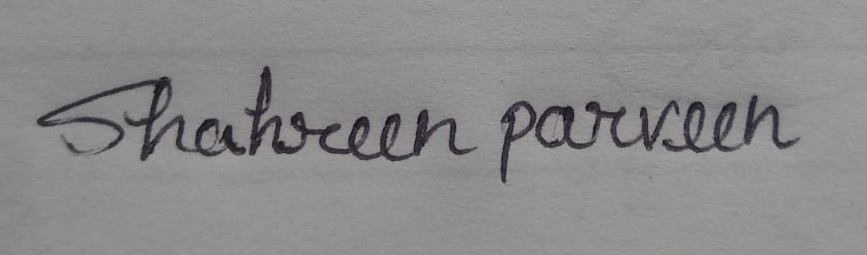 Shahreen parveen